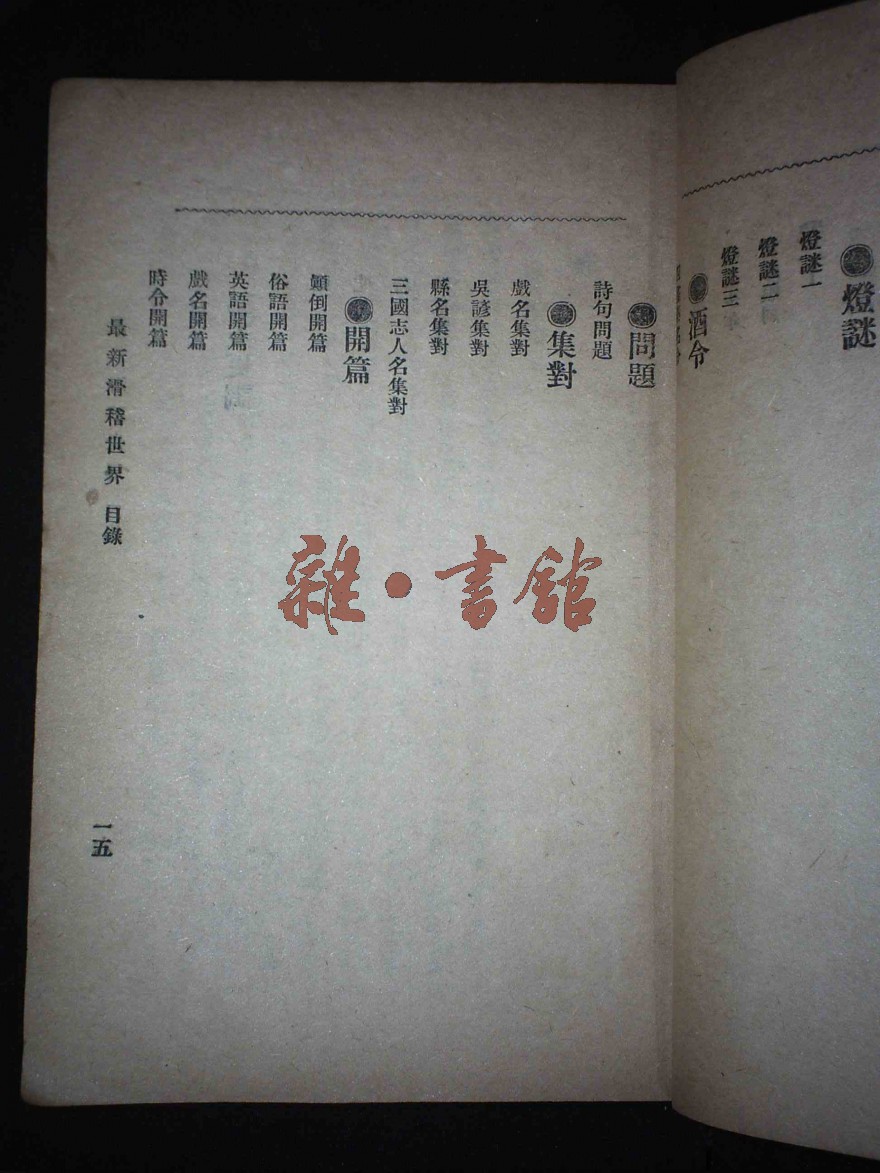 燈謎
燈謎一
燈謎二
燈謎三
酒令
問題
詩句問題
集對
戲名集對
吳諺集對
縣名集對
三國志人名集對
開篇
顛倒開篇
俗語開篇
英語開篇
戲名開篇
時令開篇
最新滑稽世界 目錄
一五
雜·書館